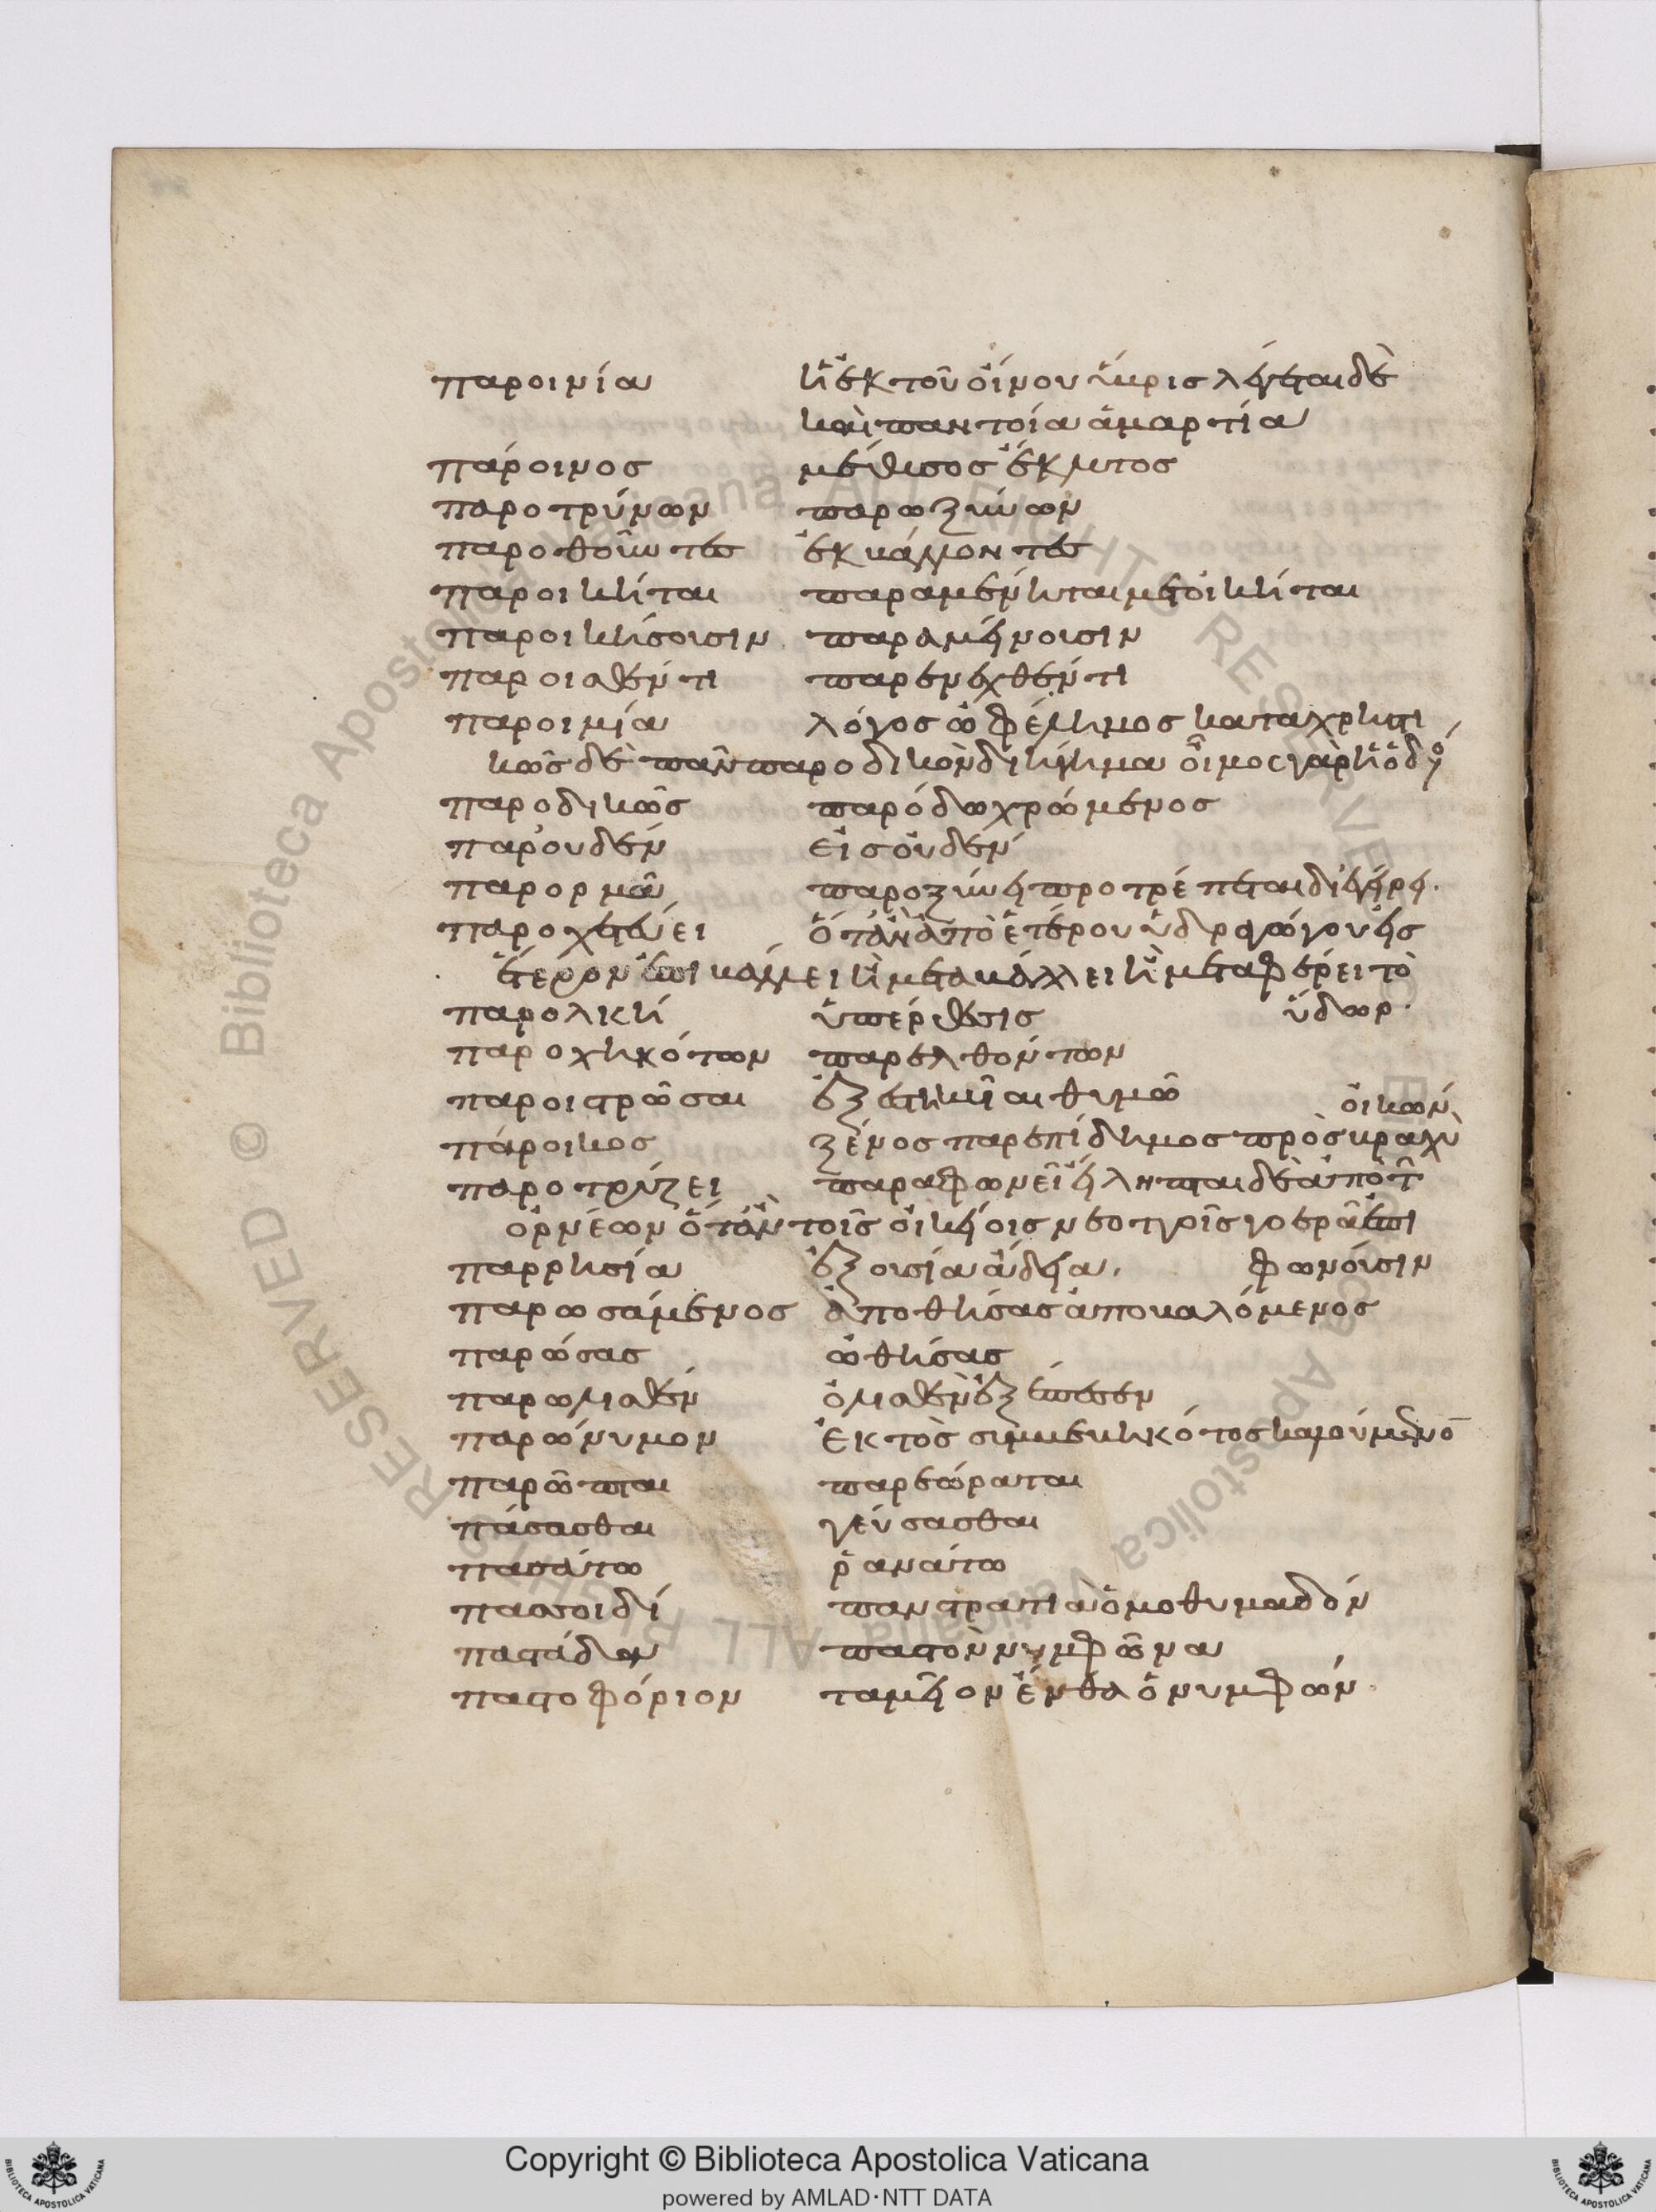 παροινία ἡ ἐκ τοῦ οἴνου ὕβρις λέγεται δὲ
καὶ παντοία ἁμαρτία
πάροινος μέθυσος ἔκλυτος
παροτρύνων παροξύνων
παροθοῦντες ἐκβάλλοντες
παροικῆται παραμένηται μετοικῆται
παροικήσουσιν παραμένουσιν
παροισθέντι παρενεχθέντι
παροιμία λόγος ὠφέλημος καταχρηστι
κῶς δὲ πᾶν παροδικὸν διήγημα οἶμος γὰρ ἡ ὁδός
παροδικῶς παρόδω χρώμενος
παρ' οὐδέν εἰς οὐδέν
παρορμᾶ παροξύνει προτρέπεται διεγείρει.
παροχετεύει ὅταν ἀπὸ ἑτέρου ὑδραγώγου εἰς
ἕτερον ἐπιβάλλει ἢ μεταβάλλει ἢ μεταφέρει τὸ
παρολκή ὑπέρθεσις ὕδωρ.
παροχηκότων παρελθόντων
παροιστρῶσαι ἐξεστηκῖαι θυμῶ οἰκῶν
πάροικος ξένος παρεπίδημος πρὸς βραχὺ
παροτρύζει παραφωνεῖ εἴληπται δὲ ἀπὸ τῶν
ὀρνέων ὅταν τοῖς οἰκείοις νεοττοῖς γοερᾶ ἐπι
παρρησία ἐξουσία ἄδεια. φωνοῦσιν
παρωσάμενος ἀποθήσας ἀποβαλόμενος
παρώσας ὠθήσας
παρώλισθεν ὄλισθεν ἐξέπεσεν
παρώνυμον ἐκ τὸς συμβεβηκότος καλούμενον
παρῶπται παρεώραται
πάσασθαι γεύσασθαι
πασάτω ῥανάτω
πασσυδί πανστρατιᾶ ὁμοθυμαδόν
παστάδα παστὸν νυμφῶνα
παστοφόριον ταμεῖον ἔνθα ὁ νυμφών
Copyright © Biblioteca Apostolica Vaticana
powered by AMLAD·NTT DATA